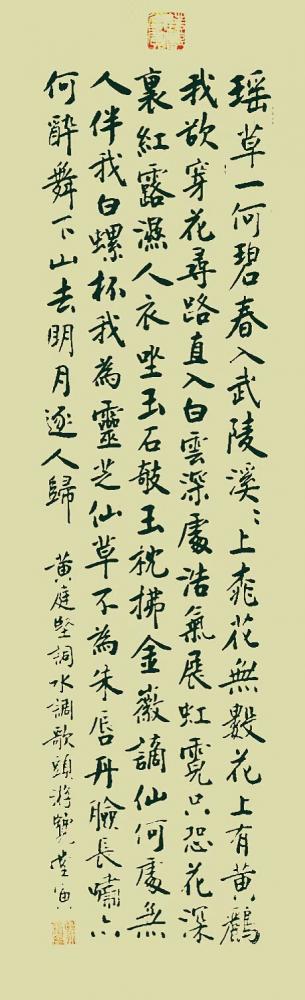 瑶草一何碧春入武陵溪〻上桃花無數花上有黃鸝
我欲穿花尋路直入白雲深處浩氣展虹霓只恐花深
裏紅露濕人衣坐玉石敧玉枕拂金徽謫仙何處無
人伴我白螺杯我為靈芝仙草不為朱唇丹臉長嘯亦
何醉舞下山去明月逐人歸
黃庭堅詞水調歌頭游覽